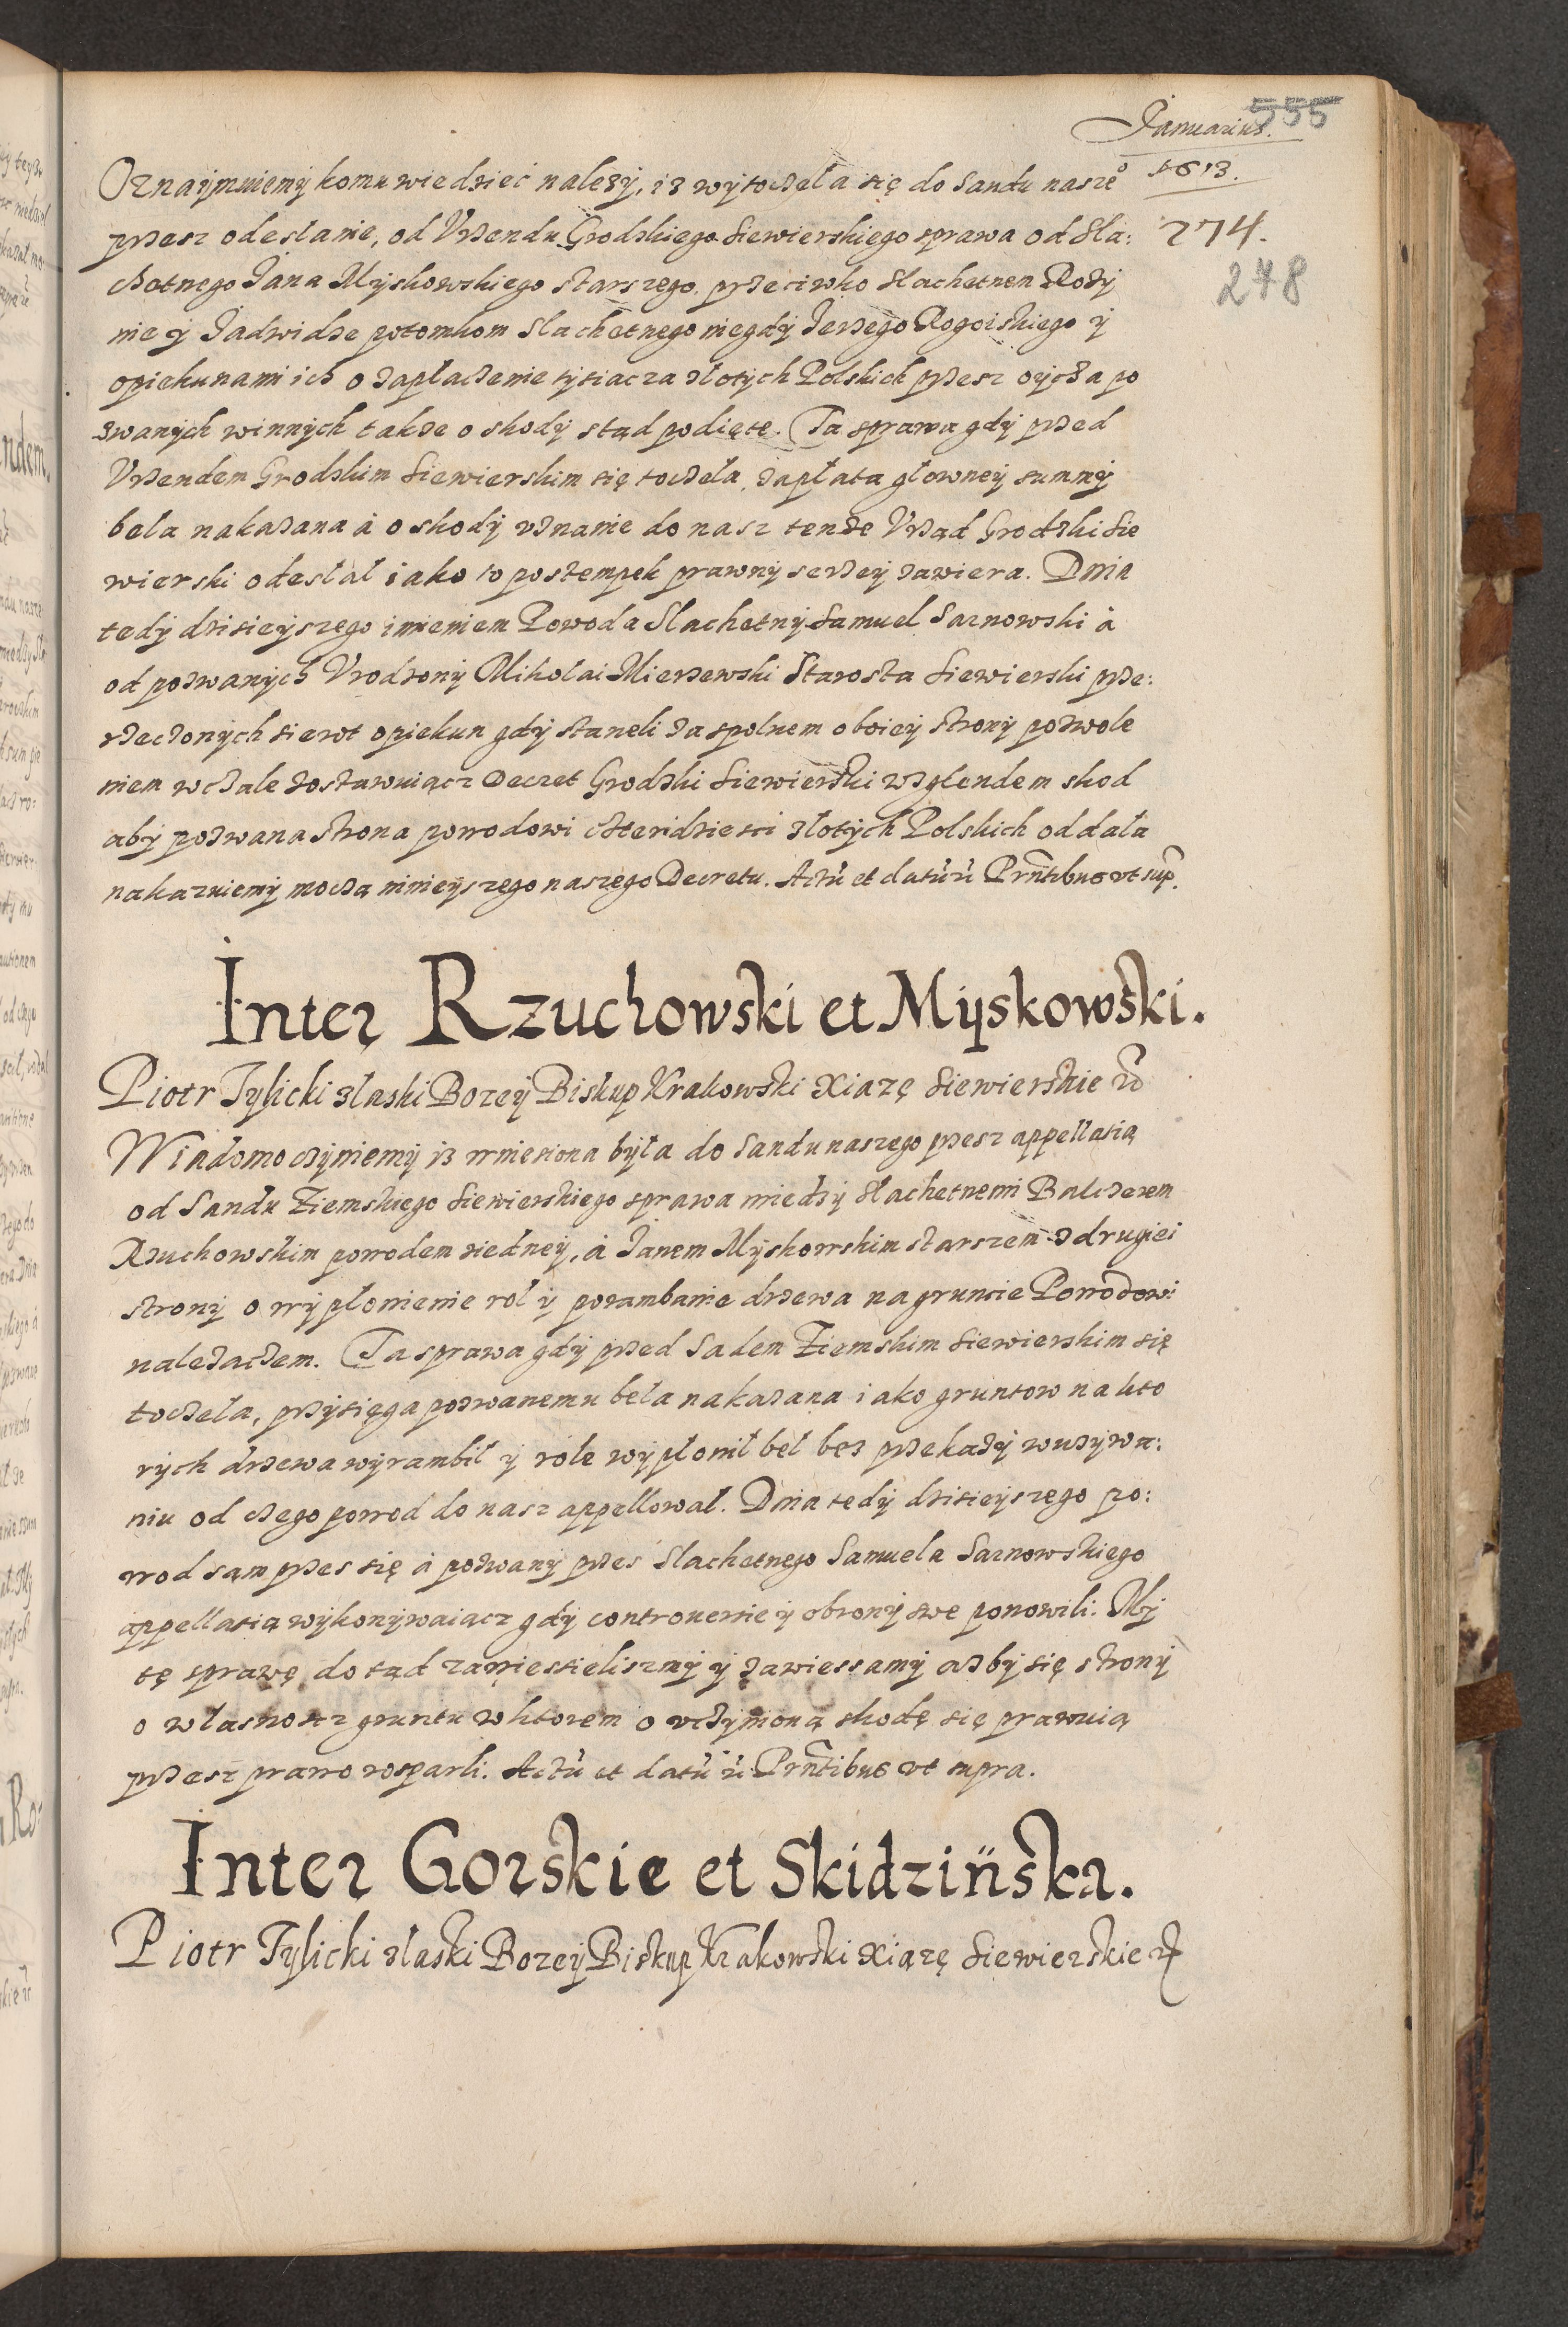 Januarius. 555
1613.
274.
248
Oznaÿmuiemÿ komu wiedzieć należÿ, iż wÿtoczeła się do Sandu nasze°
przesz odesłanie, od Vrzendu Grodzkiego Siewierskiego sprawa od Sla:
chotnego Jana Mÿskowskiego starszego. przeciwko Slachetnen Rozÿ
nie ÿ Jadwidze potomkom Slachetnego niegdÿ Jerzego Rogoiskiego ÿ
opiekunami ich o zapłaczenie tysiacza złotÿch Polskich przesz oÿcza po
zwanÿch winnÿch także o skodÿ stąd podięte. Ta sprawa gdÿ przed
Vrzendem Grodzkim Siewierskim się toczeła, zapłata głowneÿ summÿ
beła nakazana à o skodÿ vznanie do nasz tenże Vrząd Grodzki Sie
wierski odesłał iako to postempek prawnÿ serzeÿ zawiera. Dnia
tedÿ dzisieÿszego imieniem Powoda Slachetnÿ Samuel Sarnowski à
od pozwanÿch Vrodzonÿ Mikołai Mierzewski Starosta Siewierski prze:
rzeczonÿch sierot opiekun gdÿ staneli za spolnem oboieÿ stronÿ pozwole
niem wczale zostawuiącz Decret Grodzki Siewierski wzglendem skod
abÿ pozwana strona powodowi czteridziesci złotÿch Polskich oddała
nakazuiemÿ moczą ninieÿszego naszego Decretu. Actũ et datũ ũ Prñtibus vt sup.
Inter Rzuchowski et Mÿskowski.
Piotr Tylicki złaski Bozeÿ Biskup Krakowski Xiązę Siewierskie &c
Wiadomo czÿniemÿ iż wniesiona bÿła do Sandu naszego przesz appellatią
od Sandu Ziemskiego Siewierskiego sprawa miedzÿ Slachetnemi Balczerem
Rzuchowskim powodem ziedneÿ, à Janem Mÿskowskim starszem z drugiei
stronÿ o wÿpłonienie rol ÿ porambanie drzewa na gruncie Powodowi
należaczem. Ta sprawa gdÿ przed Sadem Ziemskim Siewierskim się
toczeła, przÿsięga pozwanemu beła nakazana iako gruntow na kto
rÿch drzewa wÿrambił ÿ role wÿpłonił beł bez przekazÿ wuzÿwa:
niu od czego powod do nasz appellował. Dnia tedÿ dzisieÿszego po:
wod sam przes się à pozwanÿ przes Slachetnego Samuela Sarnowskiego
appellatią wÿkonÿwaiącz gdÿ controuersie ÿ obronÿ swe ponowili: Mÿ
tę sprawę do tąd zawiesieliszmÿ ÿ zawiessamÿ azbÿ się stronÿ
o własnoscz gruntu w ktorem o vczÿnioną skodę się prawuią
przesz prawo rosparli. Actũ et datũ ũ Prñtibus vt supra.
Inter Gorskie et Skidzińska.
Piotr Tylicki złaski Bozeÿ Biskup Krakowski Xiązę Siewierskie &c